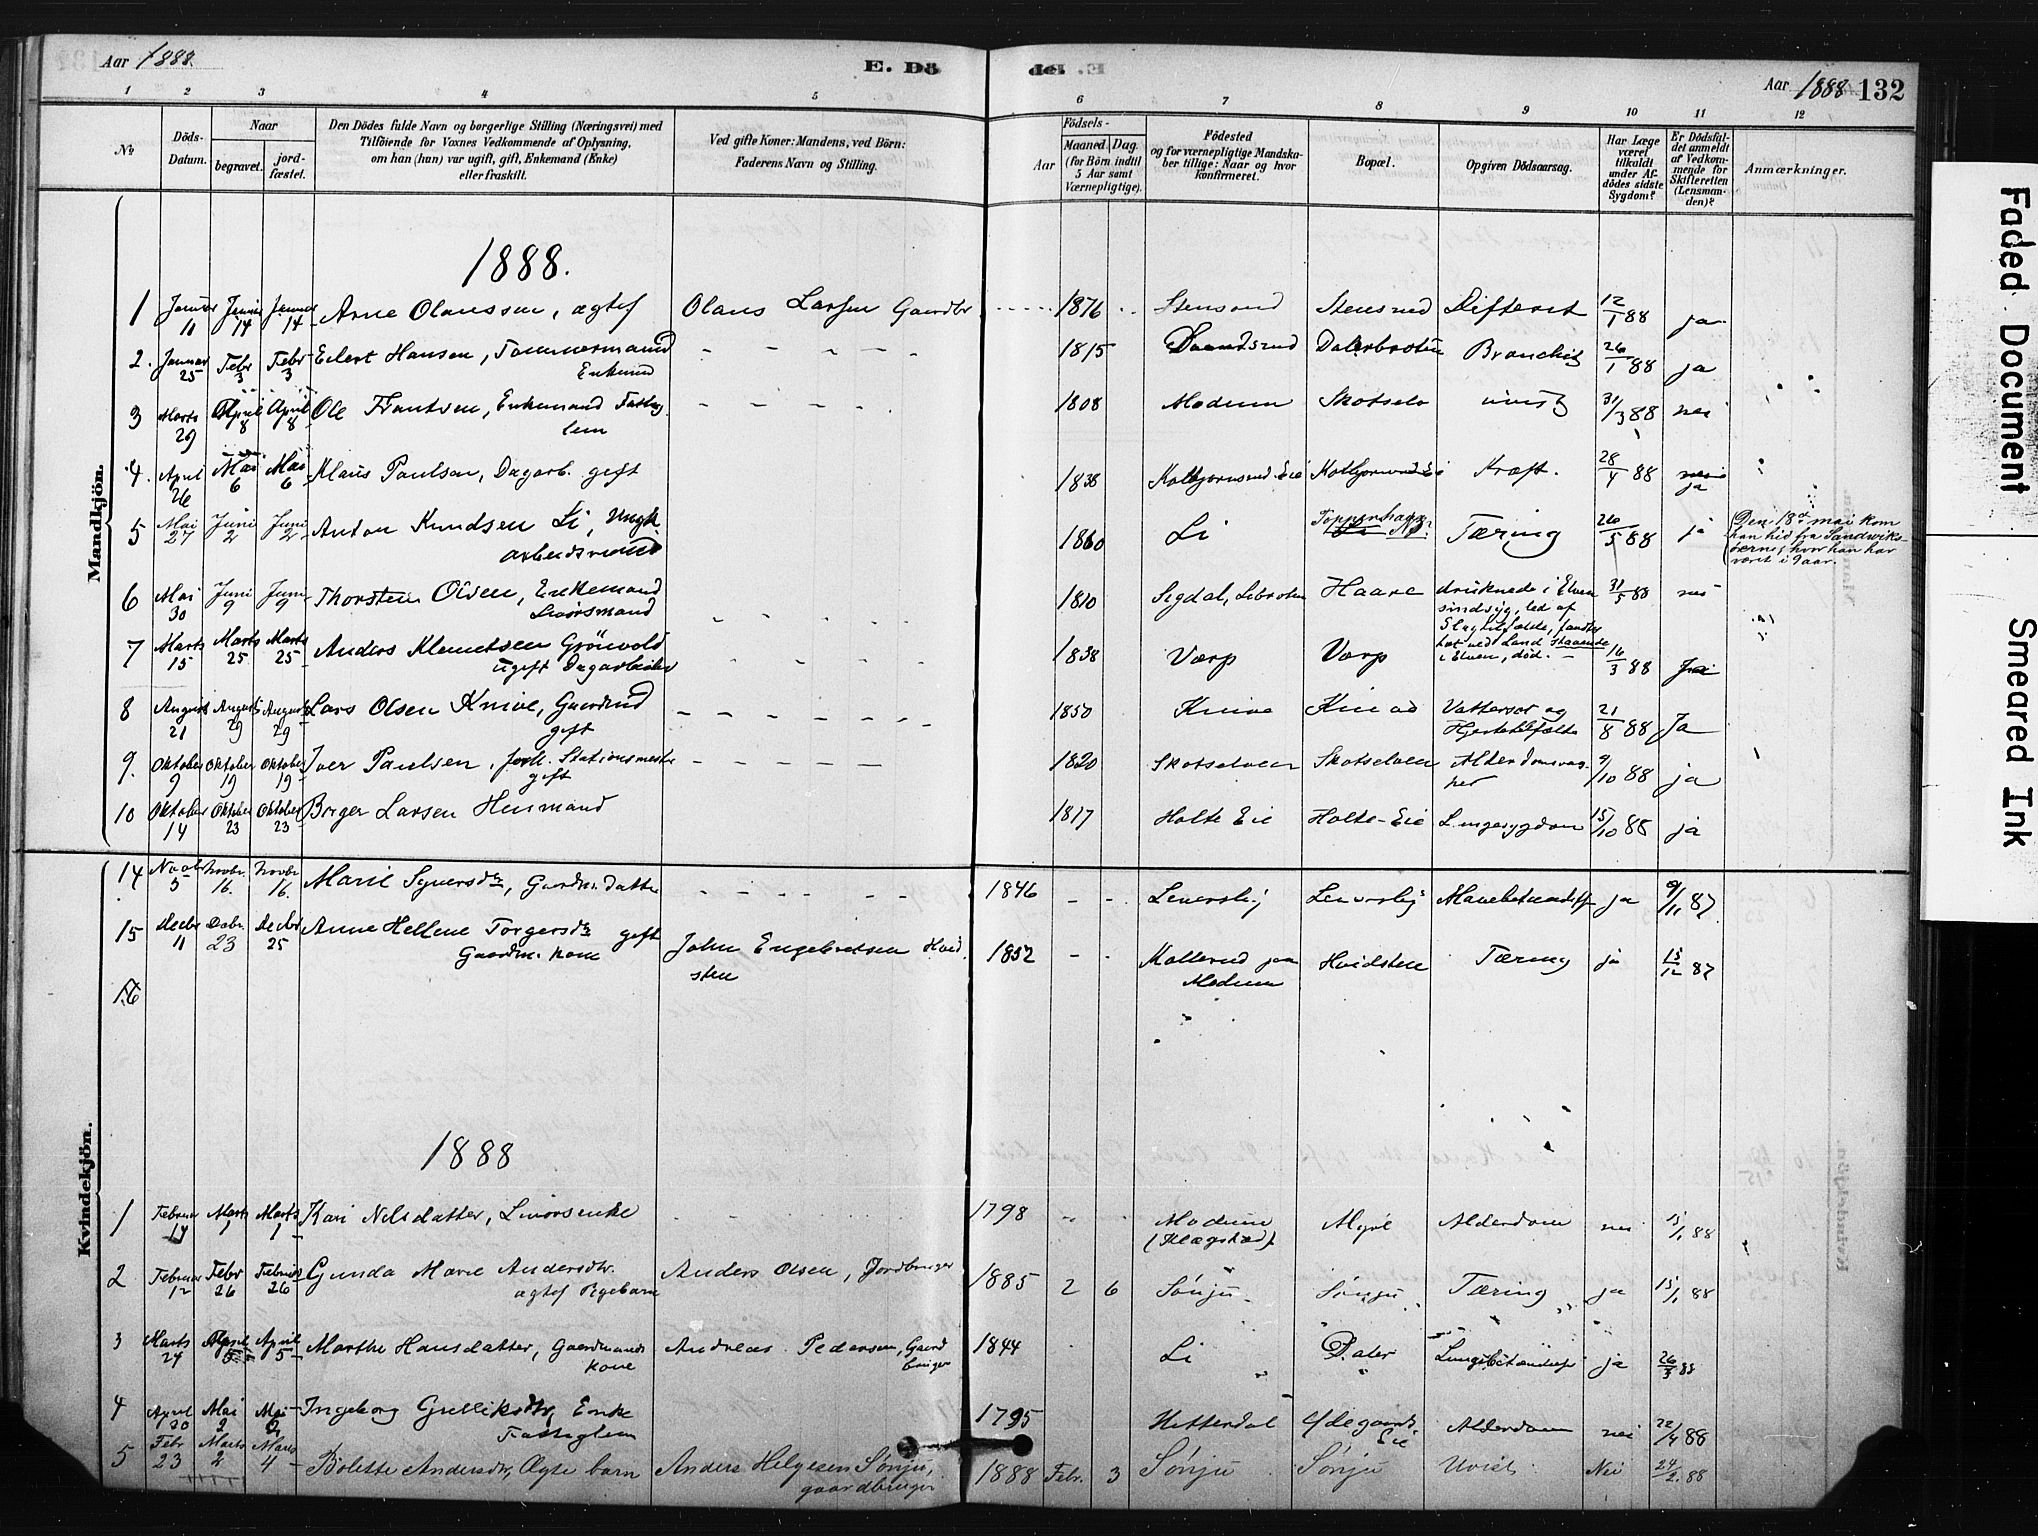 Aar 1888.
E. Dö
de. E.
Aar 1888 132
1 2 3 4 5 6 7 8 9 10 11 12
No
Döds-Datum.
Naar
begravet.
jord-fæstet.
Den Dödes fulde Navn og borgerlige Stilling (Næringsvei) med
Tilföiende for Voxnes Vedkommende af Oplysning,
om han (hun) var ugift, gift, Enkemand (Enke)
eller fraskilt.
Ved gifte Koner: Mandens, ved Börn:
Faderens Navn og Stilling.
Födsels-
Aar
Maaned. Dag.
(for Börn indtil
5 Aar samt
Værnepligtige).
Födested
og for værnepligtige Mandska-
ber tillige: Naar og hvor
konfirmeret.
Bopæl.
Opgiven Dödsaarsag.
Har Læge
været
tilkaldt
under Af-
dödes sidste
Sygdom?
Er Dödsfal-
det anmeldt
af Vedkom-
mende for
Skifteretten
(Lensman-
den)?
Anmærkninger.
Mandkjön.
1888.
1 Januar 11 Januar 14 Januar 14 Arne Olaussen, ægtef Olaus Larsen Gaardbr 1876 Stensrud Stensrud Difterit 12/1 88 ja
2. Januar 25 Febr 3 Febr 3 Eilert Hansen, Tømmermand
Enkemd 1815 Dalerbraten Bronchit 26/1 88 ja
3 Marts 29 April 8 April 8 Ole Frantsen, Enkemand Fattig
lem 1808 Modum Skotselv uvist 31/3 88 nei
4. April 26 Mai 6 Mai 6 Klaus Paulsen, Dagarb. gift 1838 Kolbjørnsrud Eie Kolbjørnsrud Eie Kræft. 28/4 88 ja
5 Mai 27 Juni 2 Juni 2 Anton Knudsen Li, Ungk
arbeidsmand 1860 Li Toppenhaug Tæring 26/5 88 ja
Den 18de mai kom
han hid fra Sandviks-
ørerne, hvor han har
været i 9 aar.
6 Mai 30 Juni 9 Juni 9 Thorsten Olsen, Enkemand
Livørsmand 1810 Sigdal, Haare druknede i Elven
sindsyg, led af
Slagtilfælde,
tæt ved Land staaende
i Elven, död. 31/5 88 nei
7 Marts 15 Marts 25 Marts 25 Anders Klemetsen Grönvold
ugift Dagarbeider 1838 Værp Værp 16/3 88 Ja
8 August 21 August 29 August 29 Lars Olsen Knive, Gaardmd
gift 1850 Knive Vattersot og
Hjertetilfælde 21/8 88 Ja
9. Oktober 9 Oktober 19 Oktober 19 Iver Paulsen, forh. Stationsmester
gift 1820 Skotselven Skotselven Alderdomssvag-
hed 9/10 88 ja
10 Oktober 14 Oktober 23 Oktober 23 Birger Larsen Husmand 1817 Holte Eie Holte-Eie Lungesygdom 15/10 88 ja
Kvindekjön.
14 Novbr 5 Novbr. 16. Novbr 16. Marie Syversdtr, Gaardm. datter 1846 ja 9/11 87
15 Decbr 11 Decbr. 23 Decbr 25 Anne Hellene Torgersdtr gift
Gaardm. kone John Engebretsen Hvid
sten 1852 Kollerud paa
Modum Hvidsten Tæring ja 13/12 87
16
1888
1 Februar 14 Marts 1 Marts 1 Kari Nilsdatter, Livørsenke 1798 Modum Myre Alderdom nei 15/1 88
2 Februar 12 Febr 26 Februar 26 Gunda Marie Andersdtr.
ægtef Pigebarn Anders Olsen, Jordbruger 1885 2 6 Sönju Sönju Tæring ja 15/1 88
3 Marts 24 April 5 April 5 Marthe Hansdatter, Gaardmands
kone Andreas Pedersen, Gaard
bruger 1844 Li Daler Lungebetændelse ja 26/3 88
4 April 20 Mai 2 Mai 2 Ingeborg Gulliksdtr, Enke
Fattiglem 1795 Hitterdal Ødegaards
Eie Alderdom nei 22/4 88
5 Febr 23 Marts 2 Marts 4 Bolette Andersdtr, Ægte barn Anders Helgesen Sønju,
gaardbruger 1888 Febr. 3 Sønju Sønju Uvist. Nei 24/2. 88
Faded Document
Smeared Ink